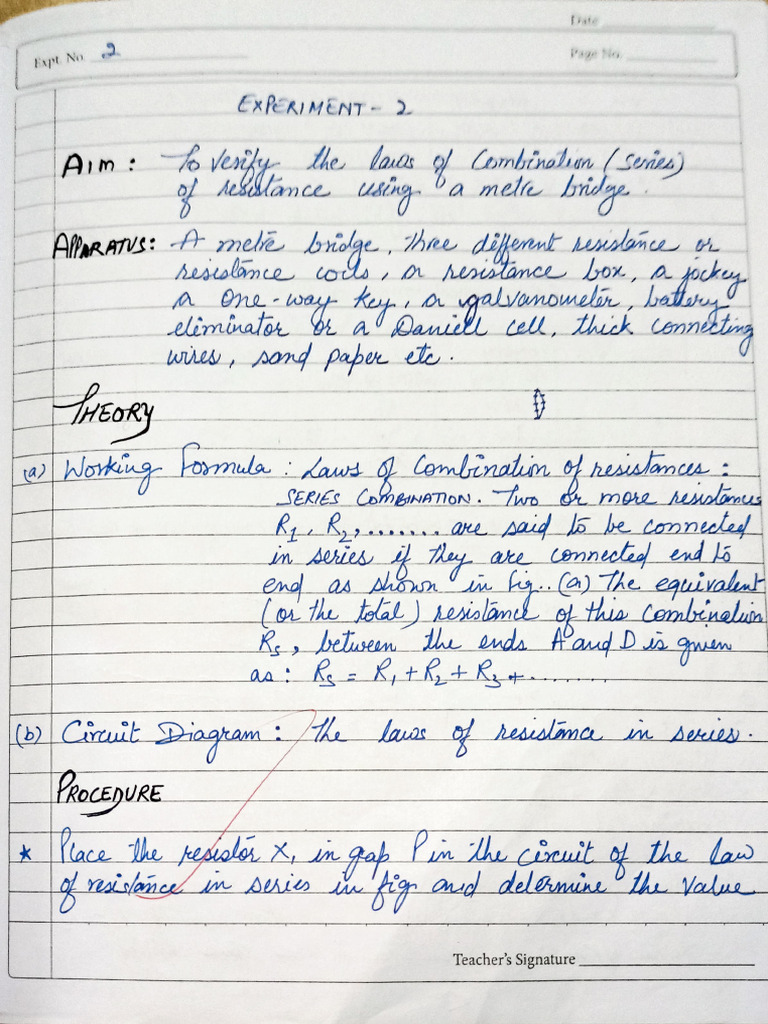 Date
Expt. No. 2
Page No.
EXPERIMENT - 2
AIM : To verify the laws of combination (series)
of resistance using a metre bridge.
APPARATUS: A metre bridge, three different resistance or
resistance coils, a resistance box, a jockey
a one-way key, a galvanometer, battery
eliminator or a Daniell cell, thick connecting
wires, sand paper etc.
THEORY
(a) Working Formula : Laws of combination of resistances :
SERIES COMBINATION. Two or more resistances
R₁, R₂, ....... are said to be connected
in series if they are connected end to
end as shown in fig.. (a) The equivalent
(or the total) resistance of this combination
Rs, between the ends A and D is given
as : Rs = R₁ + R₂ + R₃ + ........
(b) Circuit Diagram : The laws of resistance in series.
PROCEDURE
* Place the resistor X, in gap P in the circuit of the law
of resistance in series in fig and determine the value
Teacher's Signature